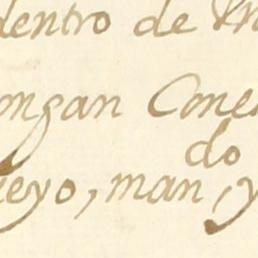 dentro de
ongan Cone
do
ueyo, man, y